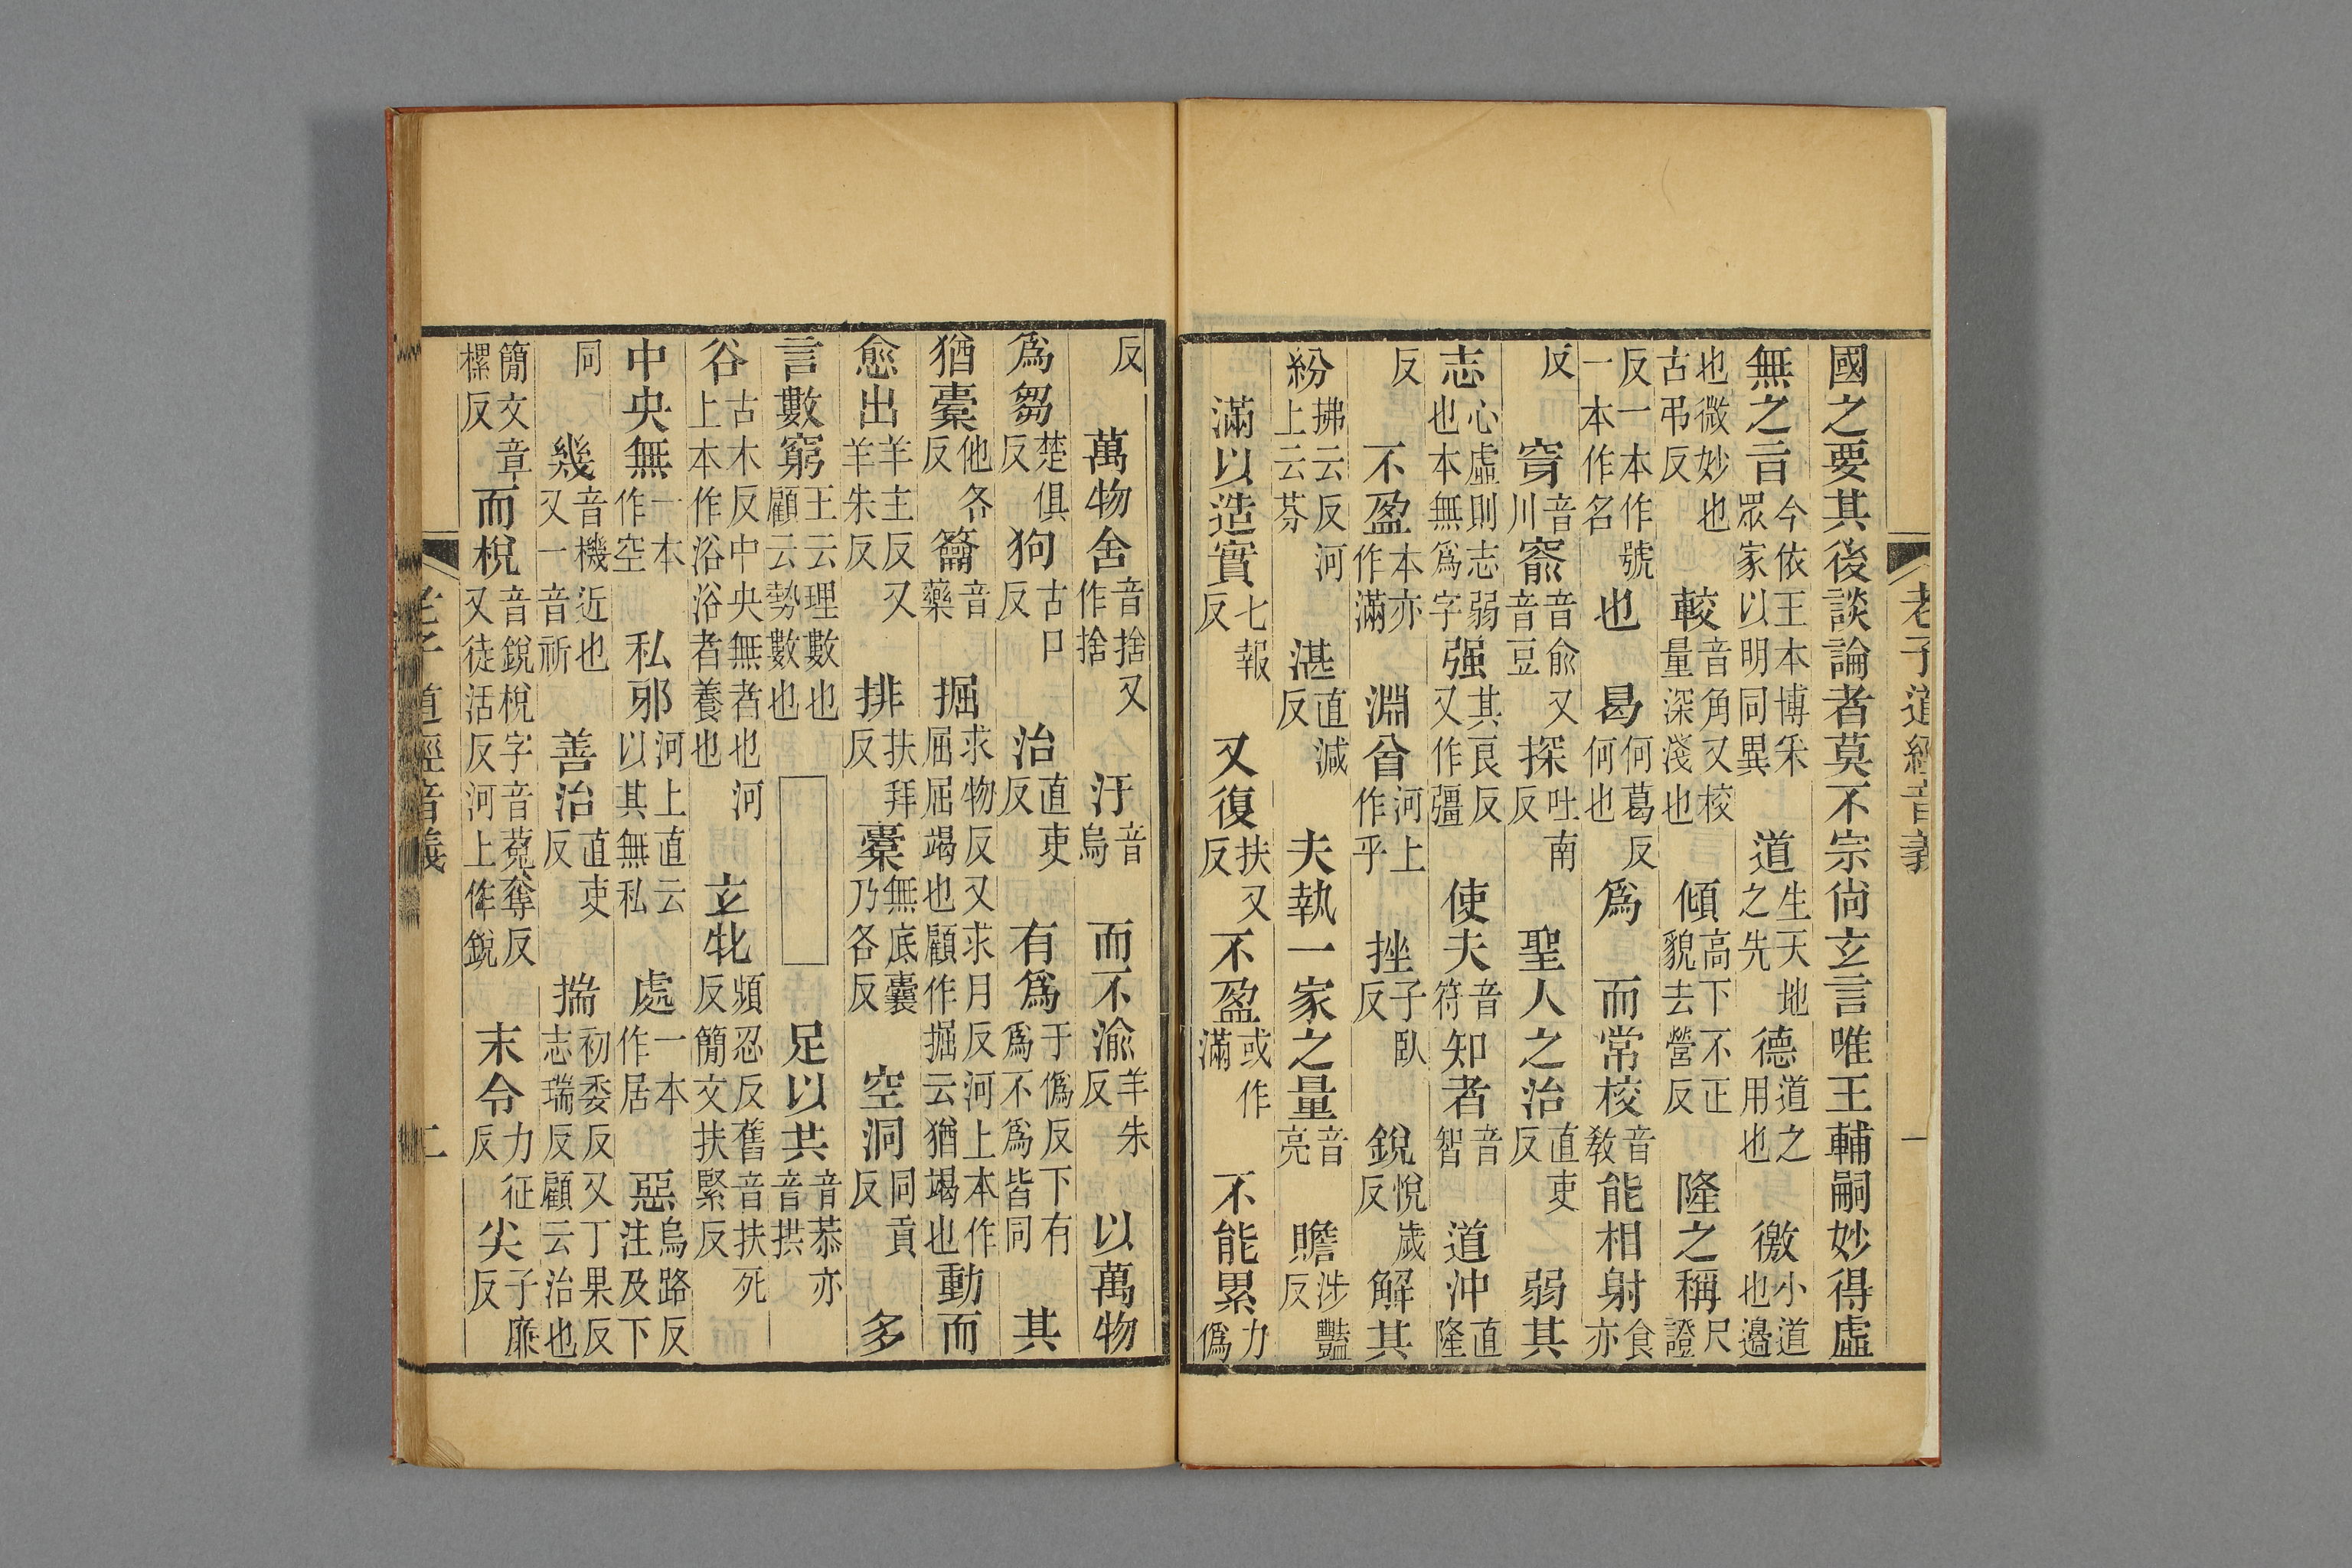 老子道經音義 一
國之要其後談論者莫不宗尙玄言唯王輔嗣妙得虛
無之言今依王本博釆眾家以明同異 道生天地之先 德道之用也 徼小道也邊
也微妙也古弔反 較音角又校量深淺也 傾高下不正貌去營反 隆之稱尺證
反一本作號一本作名 也 曷何葛反何也 爲 而常校音敎 能相射食亦
反 穿音川窬音俞又音豆 探吐南反 聖人之治直吏反 弱其
志心虛則志弱也本無爲字 强其良反又作彊 使夫音符 知者音智 道沖直隆
反 不盈本亦作滿 淵㕣河上作乎 挫子臥反 銳悅歲反 解其
紛拂云反河上云芬 湛直減反 夫執一家之量音亮 贍涉豔反
滿以造實七報反 又復扶又反 不盈或作滿 不能累力僞
反 萬物舍音捨又作捨 汙音烏 而不渝羊朱反 以萬物
爲芻楚俱反 狗古口反 治直吏反 有爲于僞反下有爲不爲皆同 其
猶橐他各反 籥音藥 掘求物反又求月反河上本作屈屈竭也顧作掘云猶竭也 動而
愈出羊主反又羊朱反 排扶拜反 橐無底囊乃各反 空洞同貢反 多
言數窮王云理數也顧云勢數也 足以共音恭亦音拱
谷古木反中央無者也河上本作浴浴者養也 玄牝頻忍反舊音扶死反簡文扶緊反
中央無一本作空 私邪河上直云以其無私 處一本作居 惡烏路反注及下
同 幾音機近也又一音祈 善治直吏反 揣初委反又丁果反志瑞反顧云治也
簡文章樏反 而梲音銳梲字音菟奪反又徒活反河上作銳 末令力征反 尖子廉反
老子道經音義 二